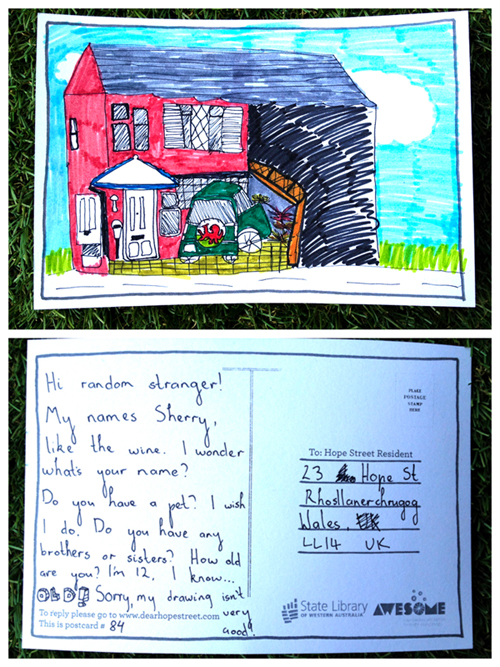 Hi random stranger!
My names Sherry,
like the wine. I wonder
what's your name?
Do you have a pet? I wish
I do. Do you have any
brothers or sisters? How old
are you? I'm 12. I know...
OLD! Sorry, my drawing isn't
very
good!
To reply please go to www.dearhopestreet.com
This is postcard # 84
PLACE
POSTAGE
STAMP
HERE
To: Hope Street Resident
23 Hope St
Rhosllanerchrugog
Wales,
LL14 UK
State Library
OF WESTERN AUSTRALIA
AWESOME